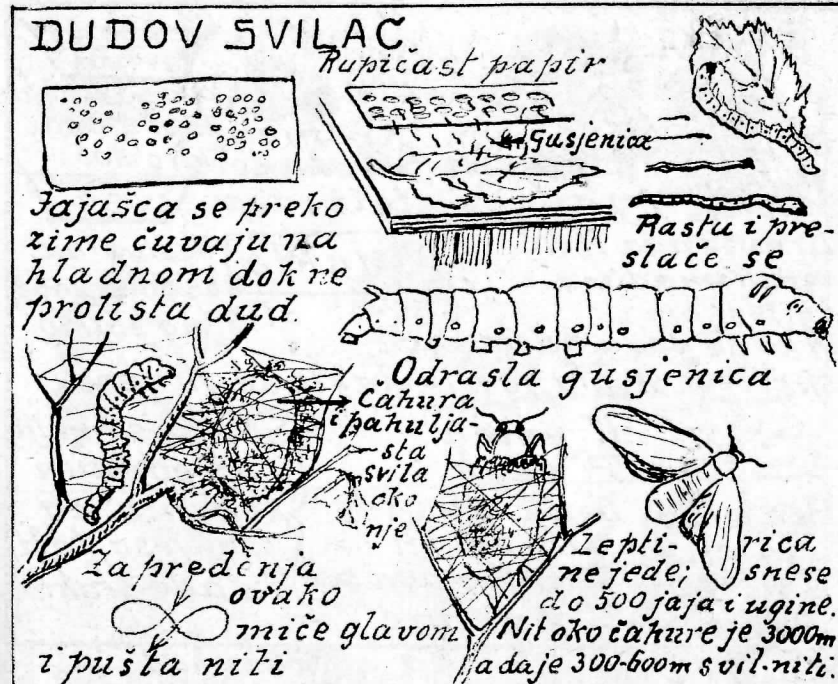 DUDOV SVILAC
Rupičast papir
Gusjenice
Jajašca se preko
zime čuvaju na
hladnom dok ne
prolista dud.
Rastu i pre-
slače se
Odrasla gusjenica
Čahura
i pahulja-
sta
svila
oko
nje
Za predenja
ovako
miče glavom
i pušta niti
Lepti- rica
ne jede; snese
do 500 jaja i ugine.
Nit oko čahure je 3000m
a daje 300-600m svil. niti.